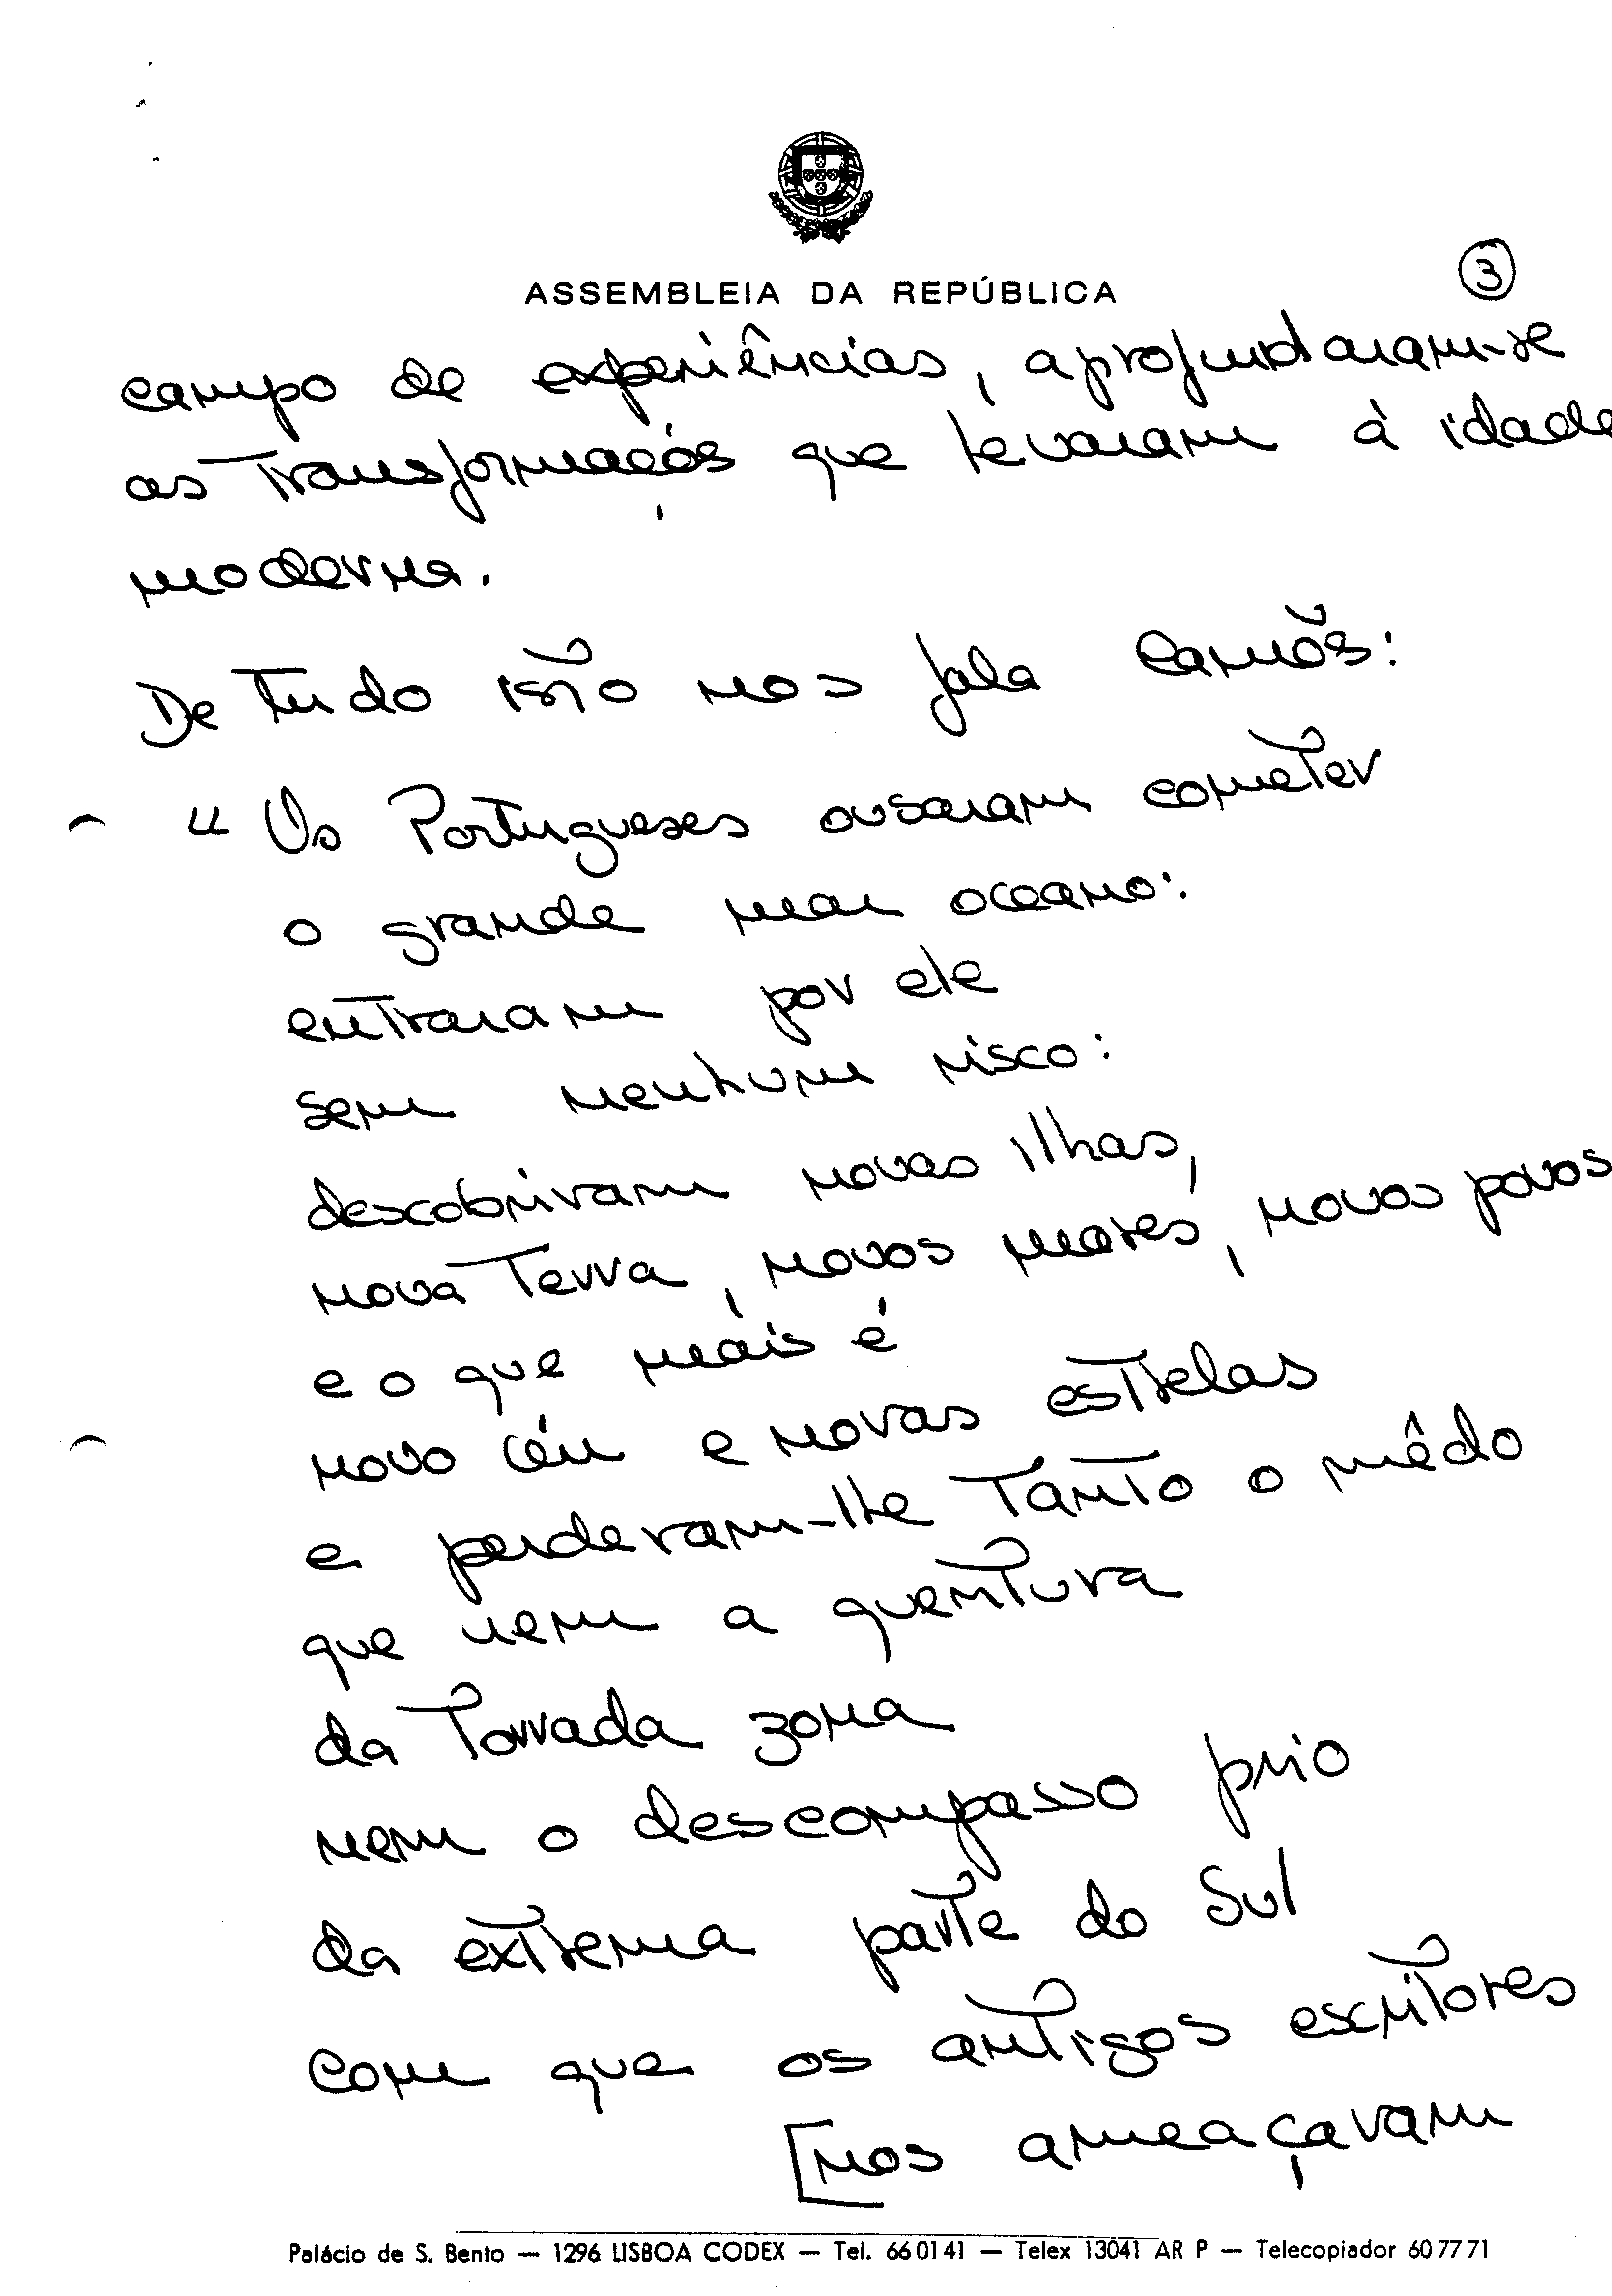 ASSEMBLEIA DA REPÚBLICA
3
campo de experiências, aprofundaram-se
as transformações que levaram à idade
moderna.
De tudo isto nos fala Camões:
"Os Portugueses ousaram cometer
o grande mar oceano:
entraram por ele
sem nenhum risco:
descobriram novas ilhas,
nova terra, novos mares, novos povos
e o que mais é
novo céu e novas estrelas
e perderam-lhe tanto o mêdo
que nem a quentura
da torrada zona
nem o descompasso frio
da extrema parte do Sul
com que os antigos escritores
[nos ameaçavam
Palácio de S. Bento — 1296 LISBOA CODEX — Tel. 66 01 41 — Telex 13041 AR P — Telecopiador 60 77 71